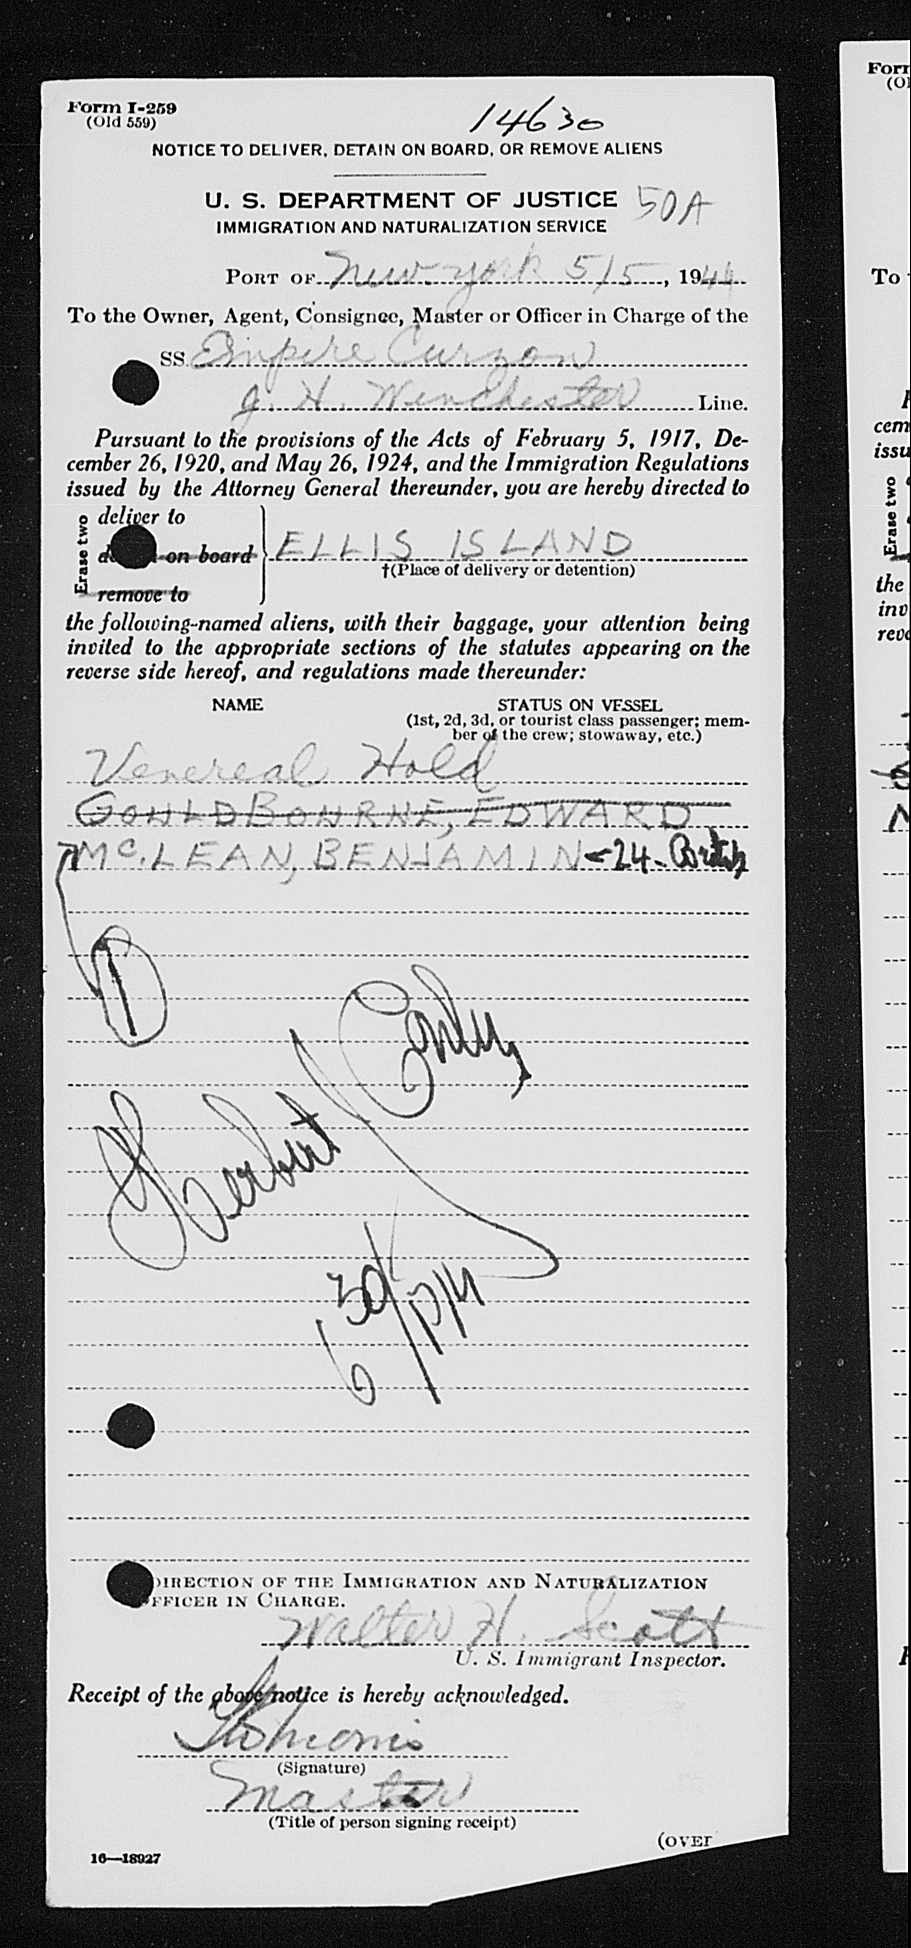 Form I-259
(Old 559)
14630
NOTICE TO DELIVER, DETAIN ON BOARD, OR REMOVE ALIENS
U. S. DEPARTMENT OF JUSTICE 50A
IMMIGRATION AND NATURALIZATION SERVICE
PORT OF New York 5/5, 1944
To the Owner, Agent, Consignee, Master or Officer in Charge of the
SS Empire Curzon
J. H. Winchester Line.
Pursuant to the provisions of the Acts of February 5, 1917, De-
cember 26, 1920, and May 26, 1924, and the Immigration Regulations
issued by the Attorney General thereunder, you are hereby directed to
Erase two
deliver to
on board
remove to
ELLIS ISLAND
†(Place of delivery or detention)
the following-named aliens, with their baggage, your attention being
invited to the appropriate sections of the statutes appearing on the
reverse side hereof, and regulations made thereunder:
NAME
STATUS ON VESSEL
(1st, 2d, 3d, or tourist class passenger; mem-
ber of the crew; stowaway, etc.)
Venereal Hold
GOULDBOURNE, EDWARD
Mc.LEAN, BENJAMIN - 24 - British
1
Herbert
6 30/PM
DIRECTION OF THE IMMIGRATION AND NATURALIZATION
OFFICER IN CHARGE.
Walter H. Scott
U. S. Immigrant Inspector.
Receipt of the above notice is hereby acknowledged.
(Signature)
Master
(Title of person signing receipt)
(OVER
16—18927
Form
(Ol
To
cem
issu
Erase two
the
inv
reve